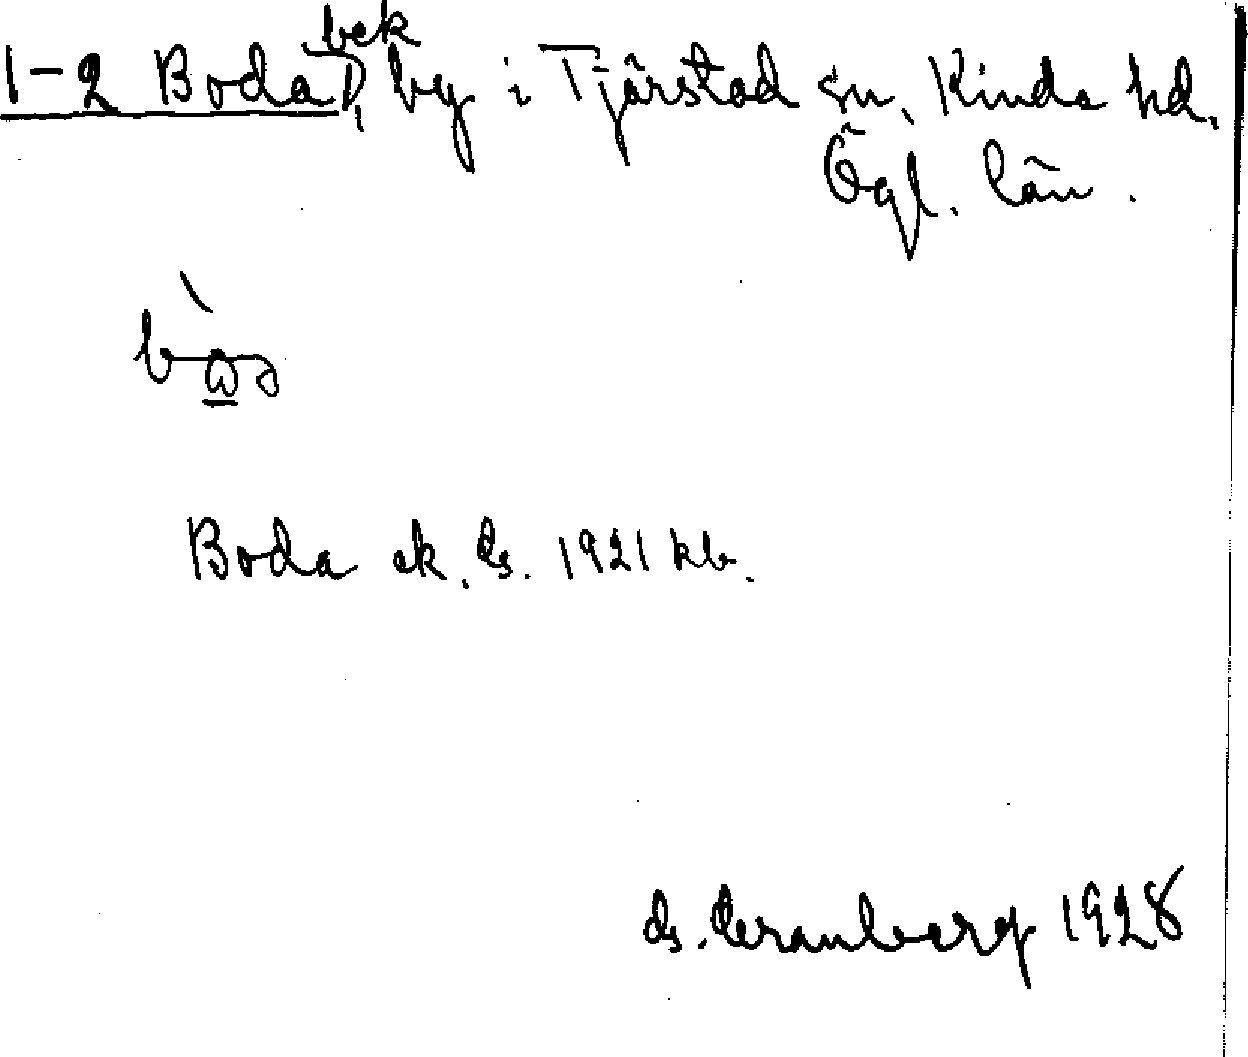 bek
1-2 Boda, by i Tjärstad sn, Kinda hd.
Ögl. län.
Boda ek. ds. 1921 kb.
1928